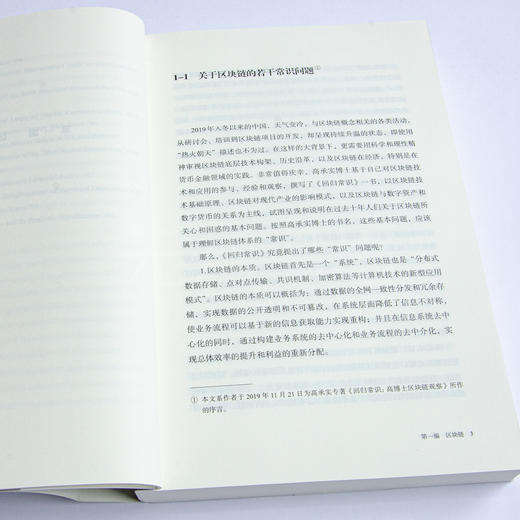 1-1 关于区块链的若干常识问题①
2019年入冬以来的中国，天气变冷，与区块链概念相关的各类活动，
从研讨会、培训到区块链项目的开发，却呈现持续升温的状态，即使用
“热火朝天”描述也不为过。在这样的大背景下，更需要用科学和理性精
神审视区块链底层技术构架、历史沿革，以及区块链在经济，特别是在
货币金融领域的实践。非常值得庆幸，高承实博士基于自己对区块链技
术和应用的参与、经验和观察，撰写了《回归常识》一书，以区块链技
术基础原理、区块链对现代产业的影响模式，以及区块链与数字资产和
数字货币的关系为主线，试图呈现和说明在过去十年人们关于区块链所
关心和困惑的基本问题。按照高承实博士的书名，这些基本问题，应该
属于理解区块链体系的“常识”。
那么，《回归常识》究竟提出了哪些“常识”问题呢？
1.区块链的本质。区块链首先是一个“系统”，区块链也是“分布式
数据存储、点对点传输、共识机制、加密算法等计算机技术的新型应用
模式”。区块链的本质可以概括为：通过数据的全网一致性分发和冗余存
储，实现数据的公开透明和不可篡改，在系统层面降低了信息不对称，
使业务流程可以基于新的信息获取能力实现重构；并且在信息系统去中
心化的同时，通过构建业务系统的去中心化和业务流程的去中介化，实
现总体效率的提升和利益的重新分配。
① 本文系作者于2019年11月21日为高承实专著《回归常识：高博士区块链观察》所作
的序言。
第一编 区块链 3